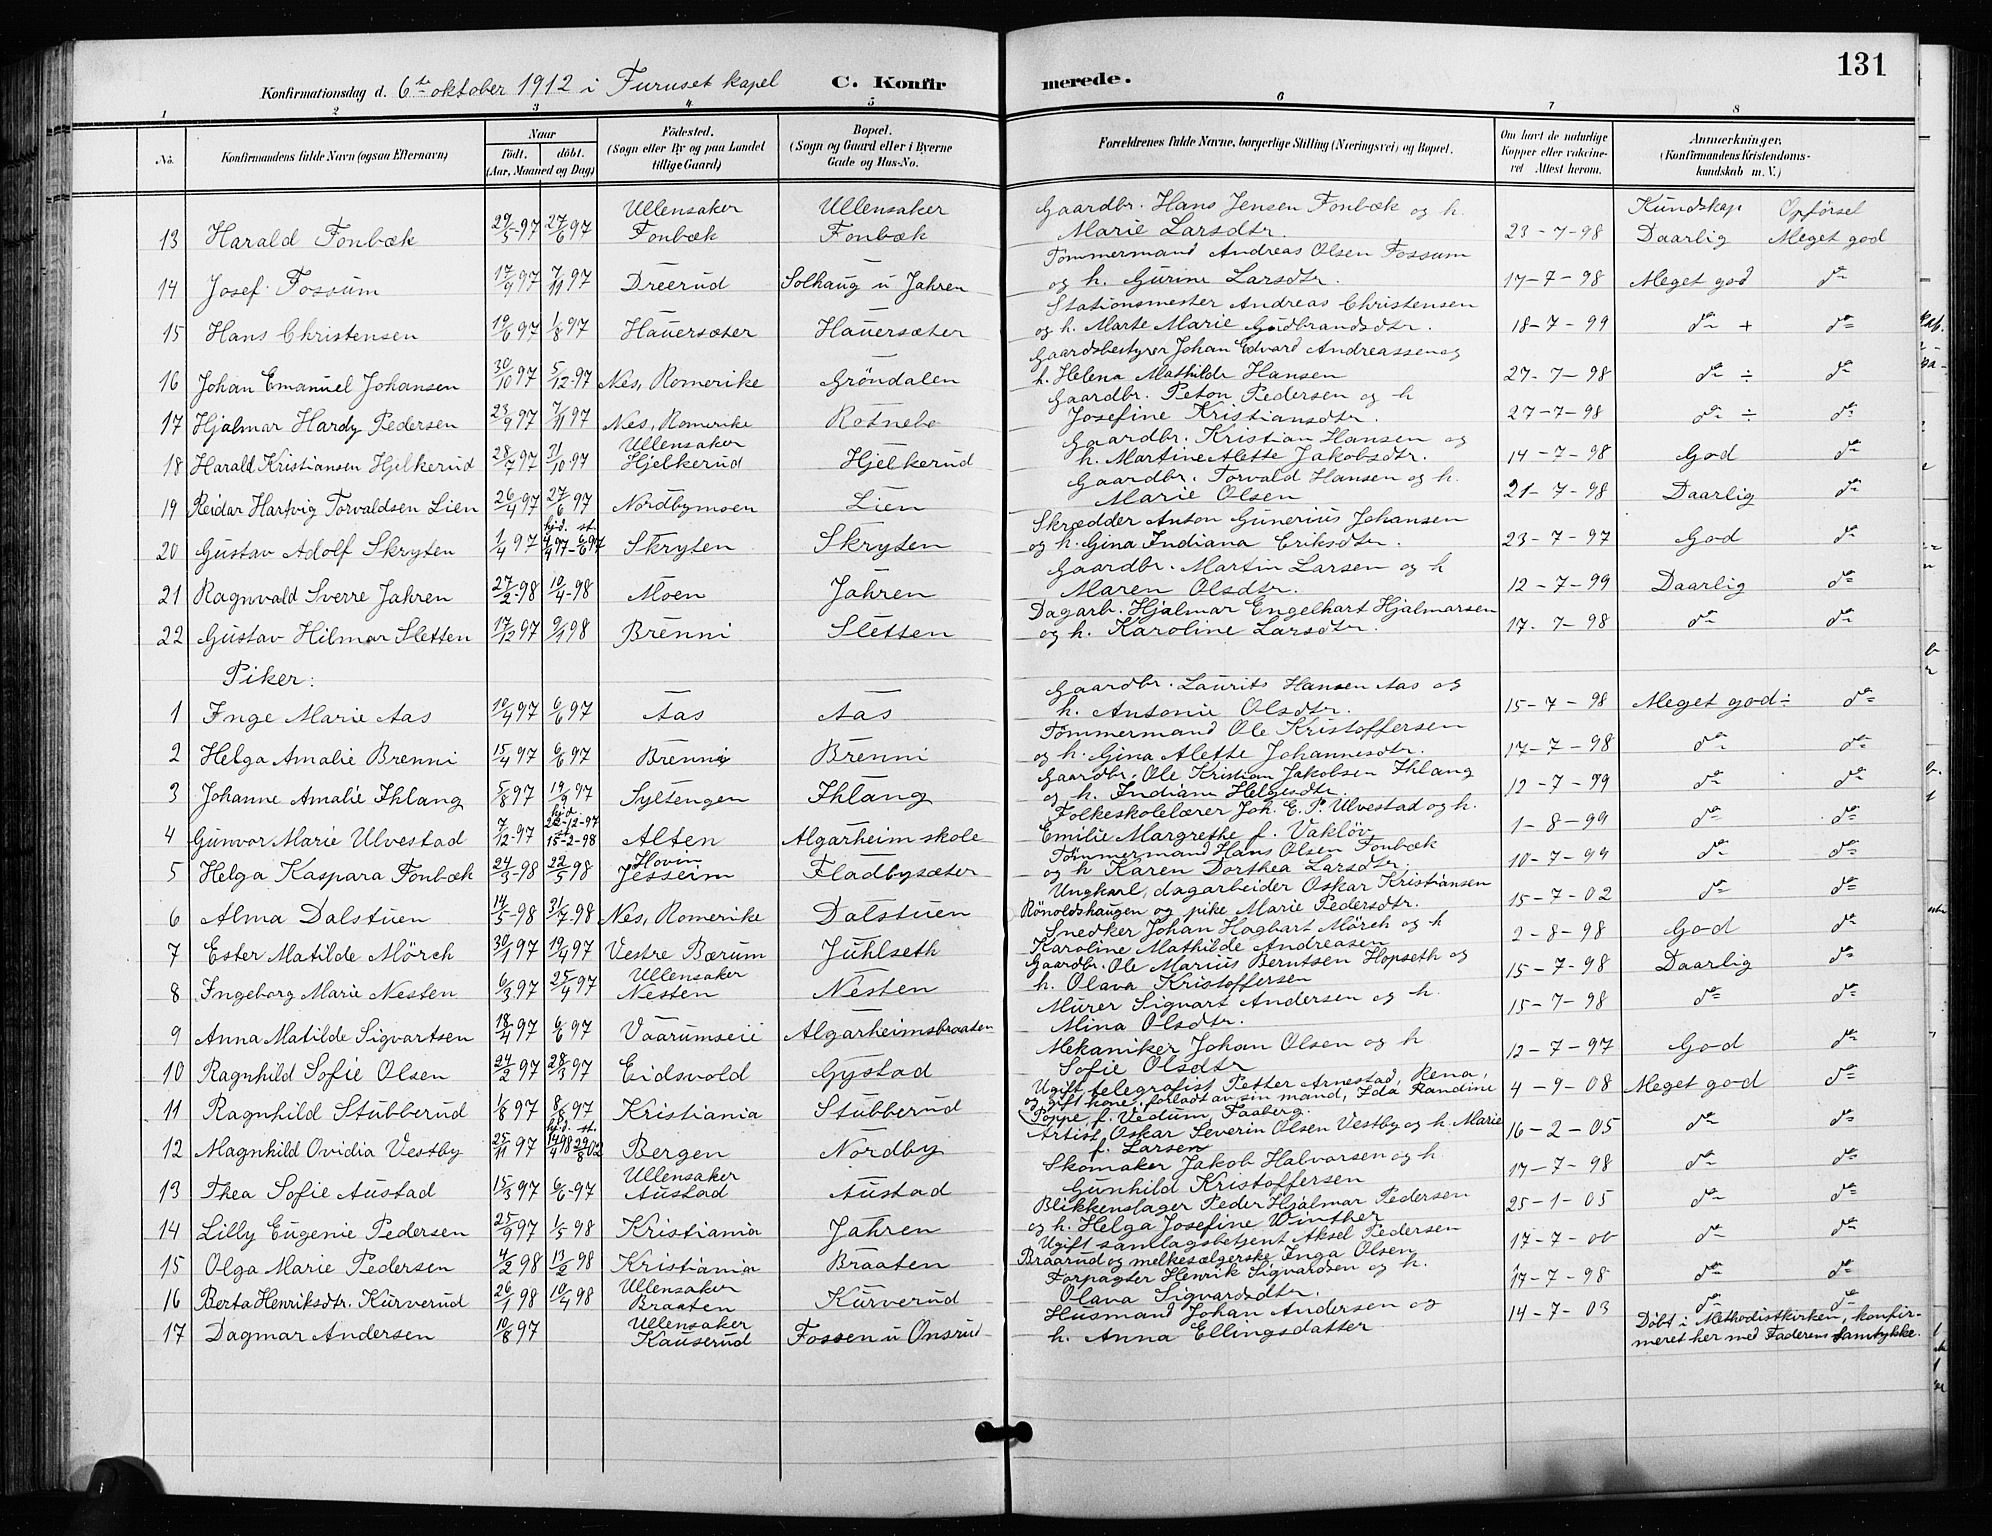 131
Konfirmationsdag d. 6te oktober 1912 i Furuset kapel C. Konfirmerede.
1 2 3 4 5 6 7 8
No. Konfirmandens fulde Navn (ogsaa Efternavn) Naar födt. döbt. (Aar, Maaned og Dag) Födested. (Sogn eller By og paa Landet tillige Gaard) Bopæl. (Sogn og Gaard eller i Byerne Gade og Hus-No. Forældrenes fulde Navne, borgerlige Stilling (Næringsvei) og Bopæl. Om havt de naturlige Kopper eller vakcineret Attest herom. Anmærkninger. (Konfirmandens Kristendomskundskab m. V.)
Ullensaker Ullensaker Gaardbr. Hans Jensen Fonbæk og h. Kundskap Opförsel
13 Harald Fonbæk 29/5-97 27/6 97 Fonbæk Fonbæk Marie Larsdtr. 23-7-98 Daarlig Meget god
Tømmermand Andreas Olsen Fossum
14 Josef Fossum 17/9 97 7/11 97 Dreerud Solhaug u Jahren og h. Gurine Larsdtr. 17-7-98 Meget god do
Stationsmester Andreas Christensen
15 Hans Christensen 19/6 97 1/8 97 Hauersæter Hauersæter og h. Marte Marie Gudbrandsdtr. 18-7-99 do + do
Gaardsbestyrer Johan Edvard Andreassen og
16 Johan Emanuel Johansen 30/10 97 5/12-97 Nes, Romerike Gröndalen h. Helena Mathilde Hansen 27-7-98 do ÷ do
Gaardbr. Peton Pedersen og h
17 Hjalmar Hardy Pedersen 23/9 97 7/11 97 Nes, Romerike Rotnebo Josefine Kristiansdtr. 27-7-98 do ÷ do
Ullensaker Gaardbr. Kristian Hansen og
18 Harald Kristiansen Hjelkerud 28/7 97 31/10 97 Hjelkerud Hjelkerud h. Martine Alette Jakobsdtr. 14-7-98 God do
Gaardbr. Torvald Hansen og h.
19 Reidar Hartvig Torvaldsen Lien 26/4 97 27/6 97 Nordbymoen Lien Marie Olsen 21-7-98 Daarlig do
hj.d. st. Skrædder Anton Gunerius Johansen
20 Gustav Adolf Skryten 1/4 97 4/4 97-6/6 97 Skryten Skryten og h. Gina Indiana Eriksdtr. 23-7-97 God do
Gaardbr. Martin Larsen og h
21 Ragnvald Sverre Jahren 27/2-98 10/4-98 Moen Jahren Maren Olsdtr. 12-7-99 Daarlig do
Dagarb. Hjalmar Engelhart Hjalmarsen
22 Gustav Hilmar Sletten 17/12 97 9/1 98 Brenni Sletten og h. Karoline Larsdtr. 17-7-98 do do
Piker:
Gaardbr. Laurits Hansen Aas og
1 Inge Marie Aas 10/4 97 6/6 97 Aas Aas h. Antonie Olsdtr. 15-7-98 Meget god ÷ do
Tømmermand Ole Kristoffersen
2 Helga Amalie Brenni 15/4 97 6/6 97 Brenni Brenni og h. Gina Alette Johannesdtr. 17-7-98 do do
Gaardbr. Ole Kristian Jakobsen Ihlang
3 Johanne Amalie Ihlang 5/8 97 19/9 97 Syltengen Ihlang og h. Indiana Helgesdtr. 12-7-99 do do
hj.d. 22-12-97 Folkeskolelærer Joh. E. P. Ulvestad og h.
4 Gunvor Marie Ulvestad 7/12-97 15-2-98 Alten Algarheim skole Emilie Margrethe f. Vakløv 1-8-99 do do
Hovin Tømmermand Hans Olsen Fonbæk
5 Helga Kaspara Fonbæk 24/3-98 22/5 98 Jesseim Fladbysæter og h Karen Dorthea Larsdtr. 10-7-99 do do
Ungkarl, dagarbeider Oskar Kristiansen
6 Alma Dalstuen 14/5-98 31/7-98 Nes, Romerike Dalstuen Rönoldshaugen og pike Marie Pedersdtr. 15-7-02 do do
Snedker Johan Hagbart Mörch og h
7 Ester Matilde Mörch 30/1 97 19/4 97 Vestre Bærum Juhlseth Karoline Mathilde Andreasen 2-8-98 God do
Ullensaker Gaardbr. Ole Marius Berntsen Hopseth og
8 Ingeborg Marie Nesten 6/3 97 25/4 97 Nesten Nesten h. Olava Kristoffersen 15-7-98 Daarlig do
Murer Sigvart Andersen og h.
9 Anna Matilde Sigvartsen 18/4 97 6/6 97 Vaarumseie Algarheimsbraaten Mina Olsdtr. 15-7-98 do do
Mekaniker Johan Olsen og h
10 Ragnhild Sofie Olsen 24/2 97 28/3 97 Eidsvold Gystad Sofie Olsdtr 12-7-97 God do
Ugift telegrafist Petter Arnestad, Rena,
og gift kone, forladt av sin mand, Ida Randine
11 Ragnhild Stubberud 1/8 97 8/8 97 Kristiania Stubberud Poppe, f. Vedum, Faaberg. 4-9-08 Meget god do
hj.d. st. Artist Oskar Severin Olsen Vestby og h. Marie
12 Magnhild Ovidia Vestby 25/11 97 14/4 98 29/8 02 Bergen Nordby f. Larsen 16-2-05 do do
Ullensaker Skomaker Jakob Halvorsen og h.
13 Thea Sofie Austad 15/3 97 6/6-97 Austad Austad Gunhild Kristoffersen 17-7-98 do do
Blikkenslager Peder Hjalmar Pedersen
14 Lilly Eugenie Pedersen 25/9 97 1/5 98 Kristiania Jahren og h. Helga Josefine Winther 25-1-05 do do
Ugift samlagsbetjent Aksel Pedersen
15 Olga Marie Pedersen 4/2 98 13/2-98 Kristiania Braaten Braarud og melkesælgerske Inga Olsen 17-7-00 do do
Ullensaker Forpagter Henrik Sigvardsen og h.
16 Berta Henriksdtr. Kurverud 26/1 98 10/4 98 Braaten Kurverud Olava Sigvardsdtr. 17-7-98 do do
Ullensaker Husmand Johan Andersen og do do
17 Dagmar Andersen 10/8 97 Kauserud Fossen u Onsrud h. Anna Ellingsdatter 14-7-03 Døbt i Methodistkirken, konfirmeret her med Faderens Samtykke.